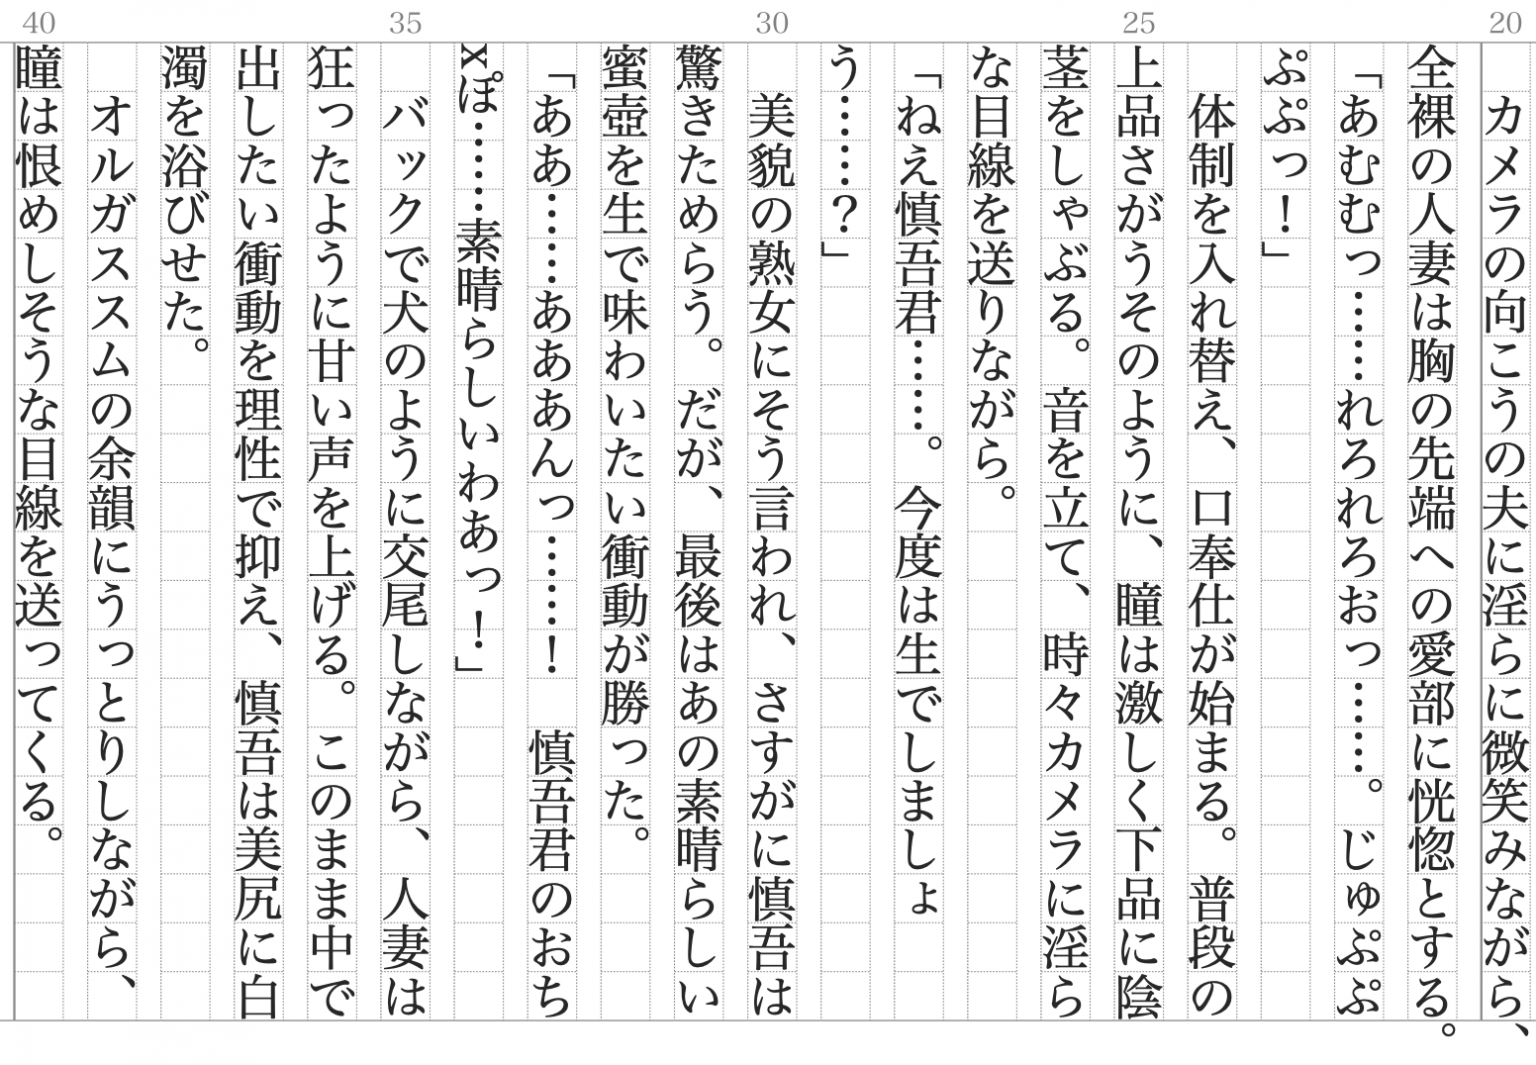 40 35 30 25 20
カメラの向こうの夫に淫らに微笑みながら、
全裸の人妻は胸の先端への愛部に恍惚とする。
「あむむっ……れろれろおっ……。じゅぷぷ
ぷぷっ！」
体制を入れ替え、口奉仕が始まる。普段の
上品さがうそのように、瞳は激しく下品に陰
茎をしゃぶる。音を立て、時々カメラに淫ら
な目線を送りながら。
「ねえ慎吾君……。今度は生でしましょ
う……？」
美貌の熟女にそう言われ、さすがに慎吾は
驚きためらう。だが、最後はあの素晴らしい
蜜壺を生で味わいたい衝動が勝った。
「ああ……あああんっ……！　慎吾君のおち
xぽ……素晴らしいわあっ！」
バックで犬のように交尾しながら、人妻は
狂ったように甘い声を上げる。このまま中で
出したい衝動を理性で抑え、慎吾は美尻に白
濁を浴びせた。
オルガススムの余韻にうっとりしながら、
瞳は恨めしそうな目線を送ってくる。